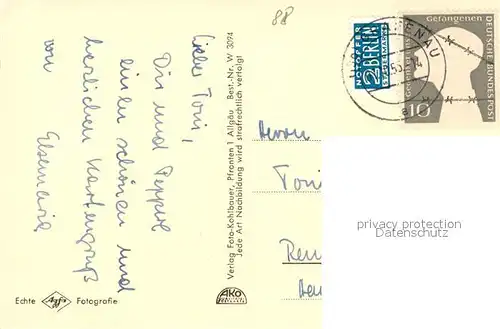 88
Lieber Toni,
Dir und Pepperl
einen schönen und
herzlichen Kartengruß
von
Elsemarie
Echte Agfa Fotografie
Verlag Foto-Kohlbauer, Pfronten 1 Allgäu Best.-Nr. W 3094
Jede Art Nachbildung wird strafrechtlich verfolgt
AKO
NOTOPFER
2 BERLIN
STEUERMARKE
Gefangenen
DEUTSCHE BUNDESPOST
10
Herrn
Toni
privacy protection
Datenschutz